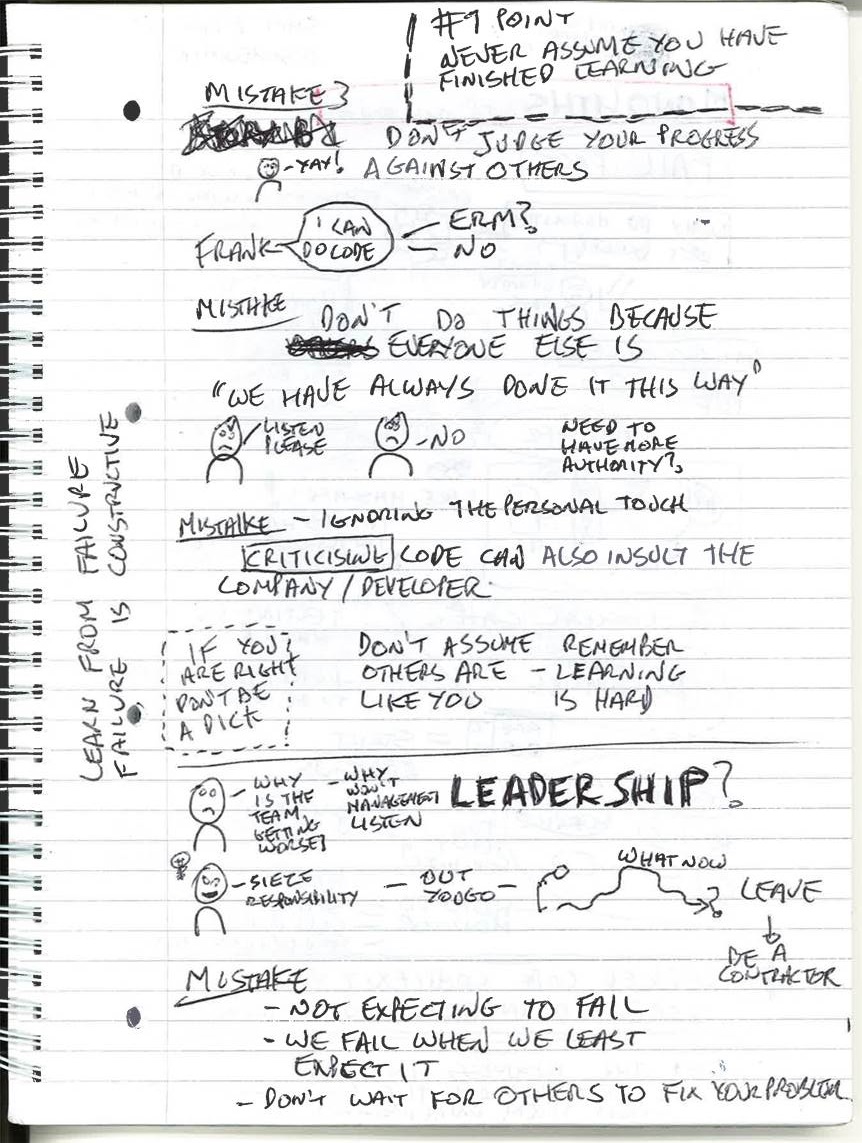 #1 POINT
NEVER ASSUME YOU HAVE
FINISHED LEARNING
MISTAKE 3
DON'T JUDGE YOUR PROGRESS
AGAINST OTHERS
- YAY!
FRANK
I CAN
DO CODE
ERM?
NO
MISTAKE
DON'T DO THINGS BECAUSE
EVERYONE ELSE IS
"WE HAVE ALWAYS DONE IT THIS WAY"
LISTEN
PLEASE
- NO
NEED TO
HAVE MORE
AUTHORITY?
MISTAKE - IGNORING THE PERSONAL TOUCH
CRITICISING CODE CAN ALSO INSULT THE
COMPANY / DEVELOPER.
LEARN FROM FAILURE
FAILURE IS CONSTRUCTIVE
IF YOU
ARE RIGHT
DON'T BE
A DICK
DON'T ASSUME
OTHERS ARE
LIKE YOU
REMEMBER
- LEARNING
IS HARD
- WHY
IS THE
TEAM
GETTING
WORSE?
- WHY
WON'T
MANAGEMENT
LISTEN
LEADERSHIP?
- SIEZE
RESPONSIBILITY
- OUT
YOU GO -
WHAT NOW
?
LEAVE
BE A
CONTRACTOR
MISTAKE
- NOT EXPECTING TO FAIL
- WE FAIL WHEN WE LEAST
EXPECT IT
- DON'T WAIT FOR OTHERS TO FIX YOUR PROBLEM